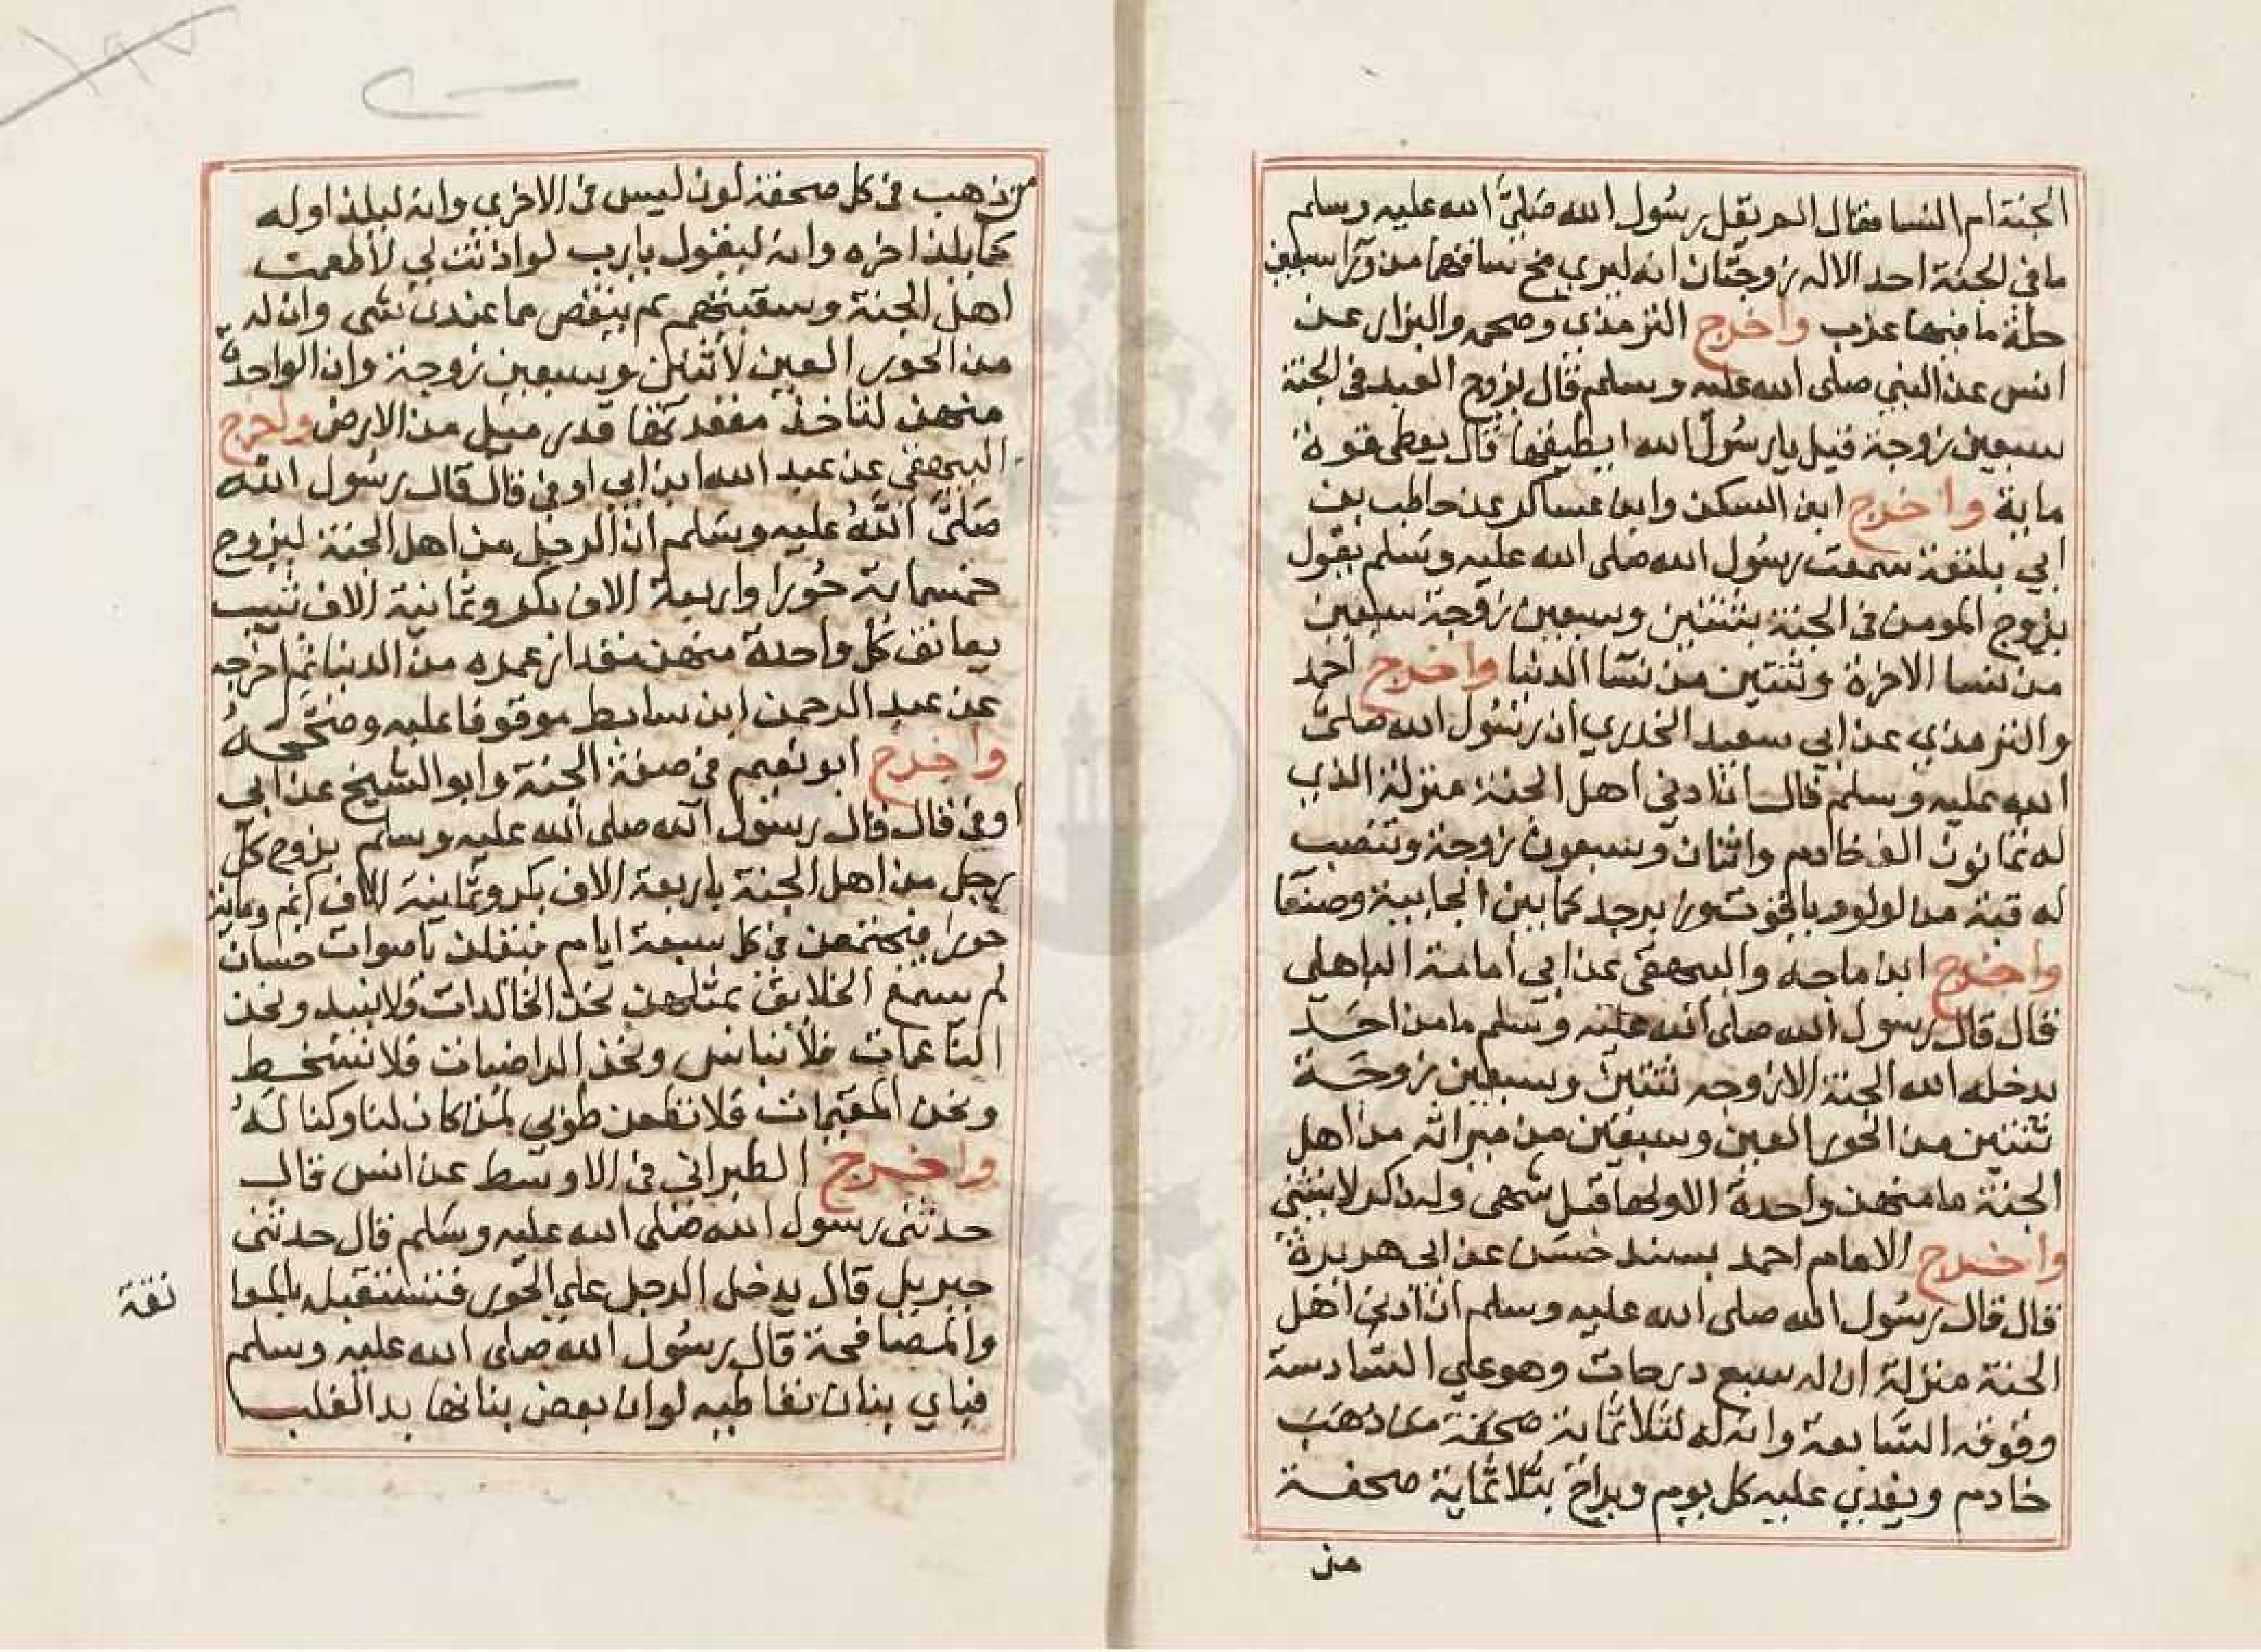 الجنة ام النسا فقال الم يقل رسول الله صلى الله عليه وسلم
ما في الجنة احد الا له زوجتان انه ليري مخ ساقهما من ورآ سبعين
حلة ما فيها عزب واخرج الترمذي وصححه والبزار عن
انس عن النبي صلى الله عليه وسلم قال يزوج العبد في الجنة
سبعين زوجة قيل يا رسول الله ايطيقها قال يعطي قوة
ماية واخرج ابن السكن وابن عساكر عن حاطب بن
ابي بلتعة سمعت رسول الله صلى الله عليه وسلم يقول
يزوج المومن في الجنة بثنتين وسبعين زوجة سبعين
من نسا الاخرة وثنتين من نسآ الدنيا واخرج احمد
والترمذي عن ابي سعيد الخدري ان رسول الله صلى
الله عليه وسلم قال ان ادني اهل الجنة منزلة الذي
له ثمانون الف خادم واثنان وسبعون زوجة وتنصب
له قبة من لولو وياقوت وزبرجد كما بين الجابية وصنعا
واخرج ابن ماجه والبيهقي عن ابي امامة الباهلي
قال قال رسول الله صلى الله عليه وسلم ما من احد
يدخله الله الجنة الا زوجه ثنتين وسبعين زوجة
ثنتين من الحور العين وسبعين من ميراثه من اهل
الجنة ما منهن واحدة الا ولها قبل شهي وله ذكر لا ينثني
واخرج الامام احمد بسند حسن عن ابي هريرة
قال قال رسول الله صلى الله عليه وسلم ان ادني اهل
الجنة منزلة ان له سبع درجات وهو علي السادسة
وفوقه السابعة وان له لثلاثماية صحفة من ذهب
خادم ويغدي عليه كل يوم ويراح بثلاثماية صحفة
من
من ذهب في كل صحفة لون ليس في الاخري وانه ليلذ اوله
كما يلذ اخره وانه ليقول يا رب لو اذنت لي لاطعمت
اهل الجنة وسقيتهم لم ينقص مما عندي شي وان له
من الحور العين لاثنين وسبعين زوجة وان الواحدة
منهن لتاخذ مقعدتها قدر ميل من الارض واخرج
البيهقي عن عبد الله ابن ابي اوفي قال قال رسول الله
صلى الله عليه وسلم ان الرجل من اهل الجنة ليزوج
خمسماية حورا واربعة الاف بكر وثمانية الاف ثيب
يعانق كل واحدة منهن مقدار عمره من الدنيا ثم اخرجه
عن عبد الرحمن ابن سابط موقوفا عليه وصححه
واخرج ابو نعيم في صفة الجنة وابو الشيخ عن ابي
اوفي قال قال رسول الله صلى الله عليه وسلم يزوج كل
رجل من اهل الجنة باربعة الاف بكر وثمانية الاف ايم وماية
حورا فيجتمعن في كل سبعة ايام فيقلن باصوات حسان
لم يسمع الخلايق بمثلهن نحن الخالدات فلا نبيد ونحن
الناعمات فلا نباس ونحن الراضيات فلا نسخط
ونحن المقيمات فلا نظعن طوبي لمن كان لنا وكنا له
واخرج الطبراني في الاوسط عن انس قال
حدثني رسول الله صلى الله عليه وسلم قال حدثني
جبريل قال يدخل الرجل علي الحور فتستقبله بالمعا
نقة
والمصافحة قال رسول الله صلى الله عليه وسلم
فباي بنان تعاطيه لو ان بعض بنانها بدا لغلب